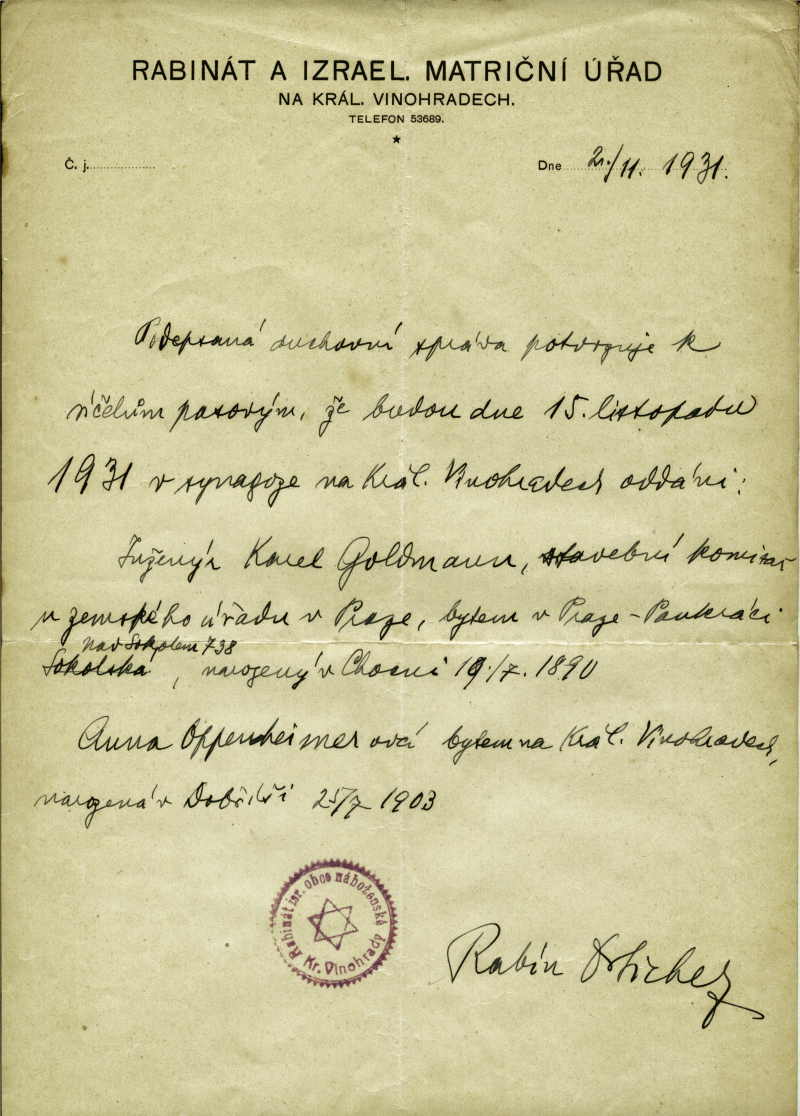 RABINÁT A IZRAEL. MATRIČNÍ ÚŘAD
NA KRÁL. VINOHRADECH.
TELEFON 53689.
Č. j.
Dne 2./11. 1931.
Podepsaná duchovní správa potvrzuje k
účelům pasovým, že budou dne 15. listopadu
1931 v synagoze na Král. Vinohradech oddáni:
Inženýr Karel Goldmann, stavební komisař
u zemského úřadu v Praze, bytem v Praze-Pankráci
Nad Sokolem 738
Sokolská, narozený v Chocni 19./7. 1890
Anna Oppenheimerová bytem na Král. Vinohradech,
narozená v Dobříši 25/7 1903
Rabinát isr. obce náboženské
Kr. Vinohrady
Rabín